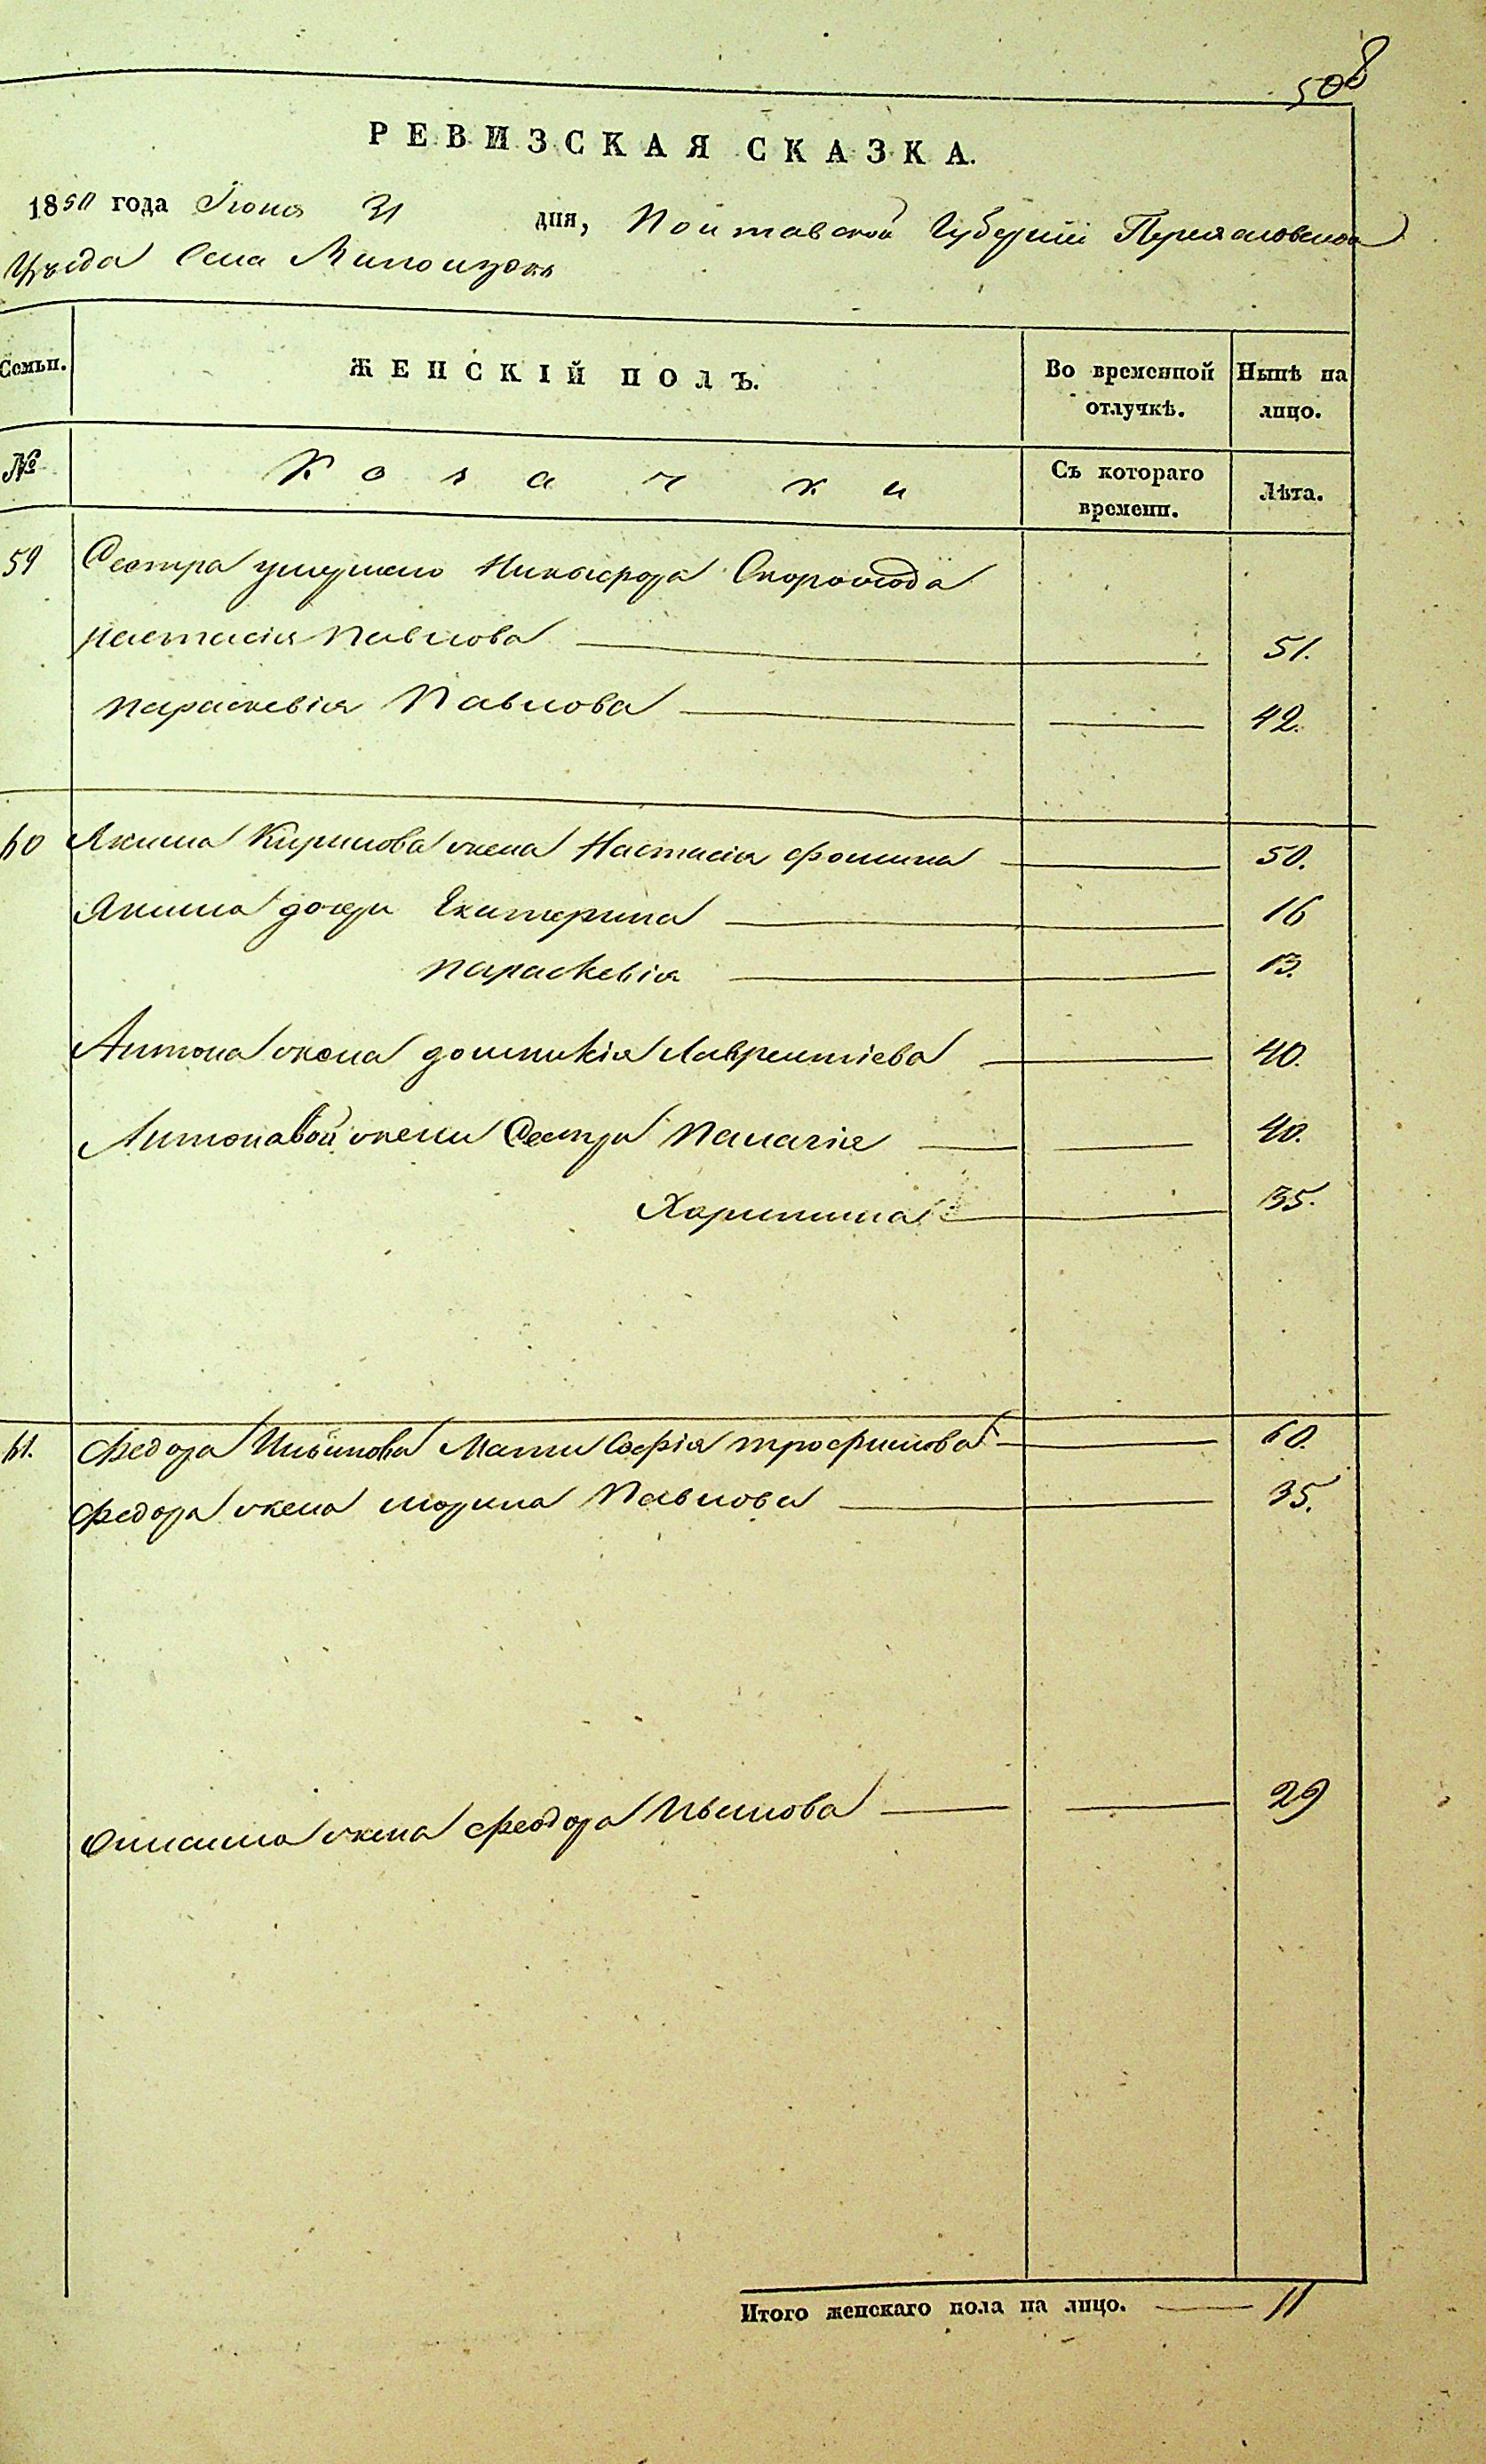 508
РЕВИЗСКАЯ СКАЗКА.
1850 года Іюня 31 дня, Полтавской Губерніи Переясловскаго
Уѣзда Села Виползокъ
Семьи. ЖЕНСКІЙ ПОЛЪ. Во временной отлучкѣ. Нынѣ на лицо.
№ Козачки Съ котораго времени. Лѣта.
59 Сестра умершаго Никифора Скорохода
Настасія Павлова 51.
Параскевія Павлова 42.
60 Якима Кирилова жена Настасія Фомина 50.
Якима дочери Екатерина 16
Параскевія 13.
Антона жена Домникія Лаврентіева 40.
Антоновой жены Сестры Палагія 40.
Харитина 35.
61. Федора Ильинова Мати Софія Трофимова 60.
Федора жена Марина Павлова 35.
жена Феодора Иванова 29
Итого женскаго пола на лицо. 11